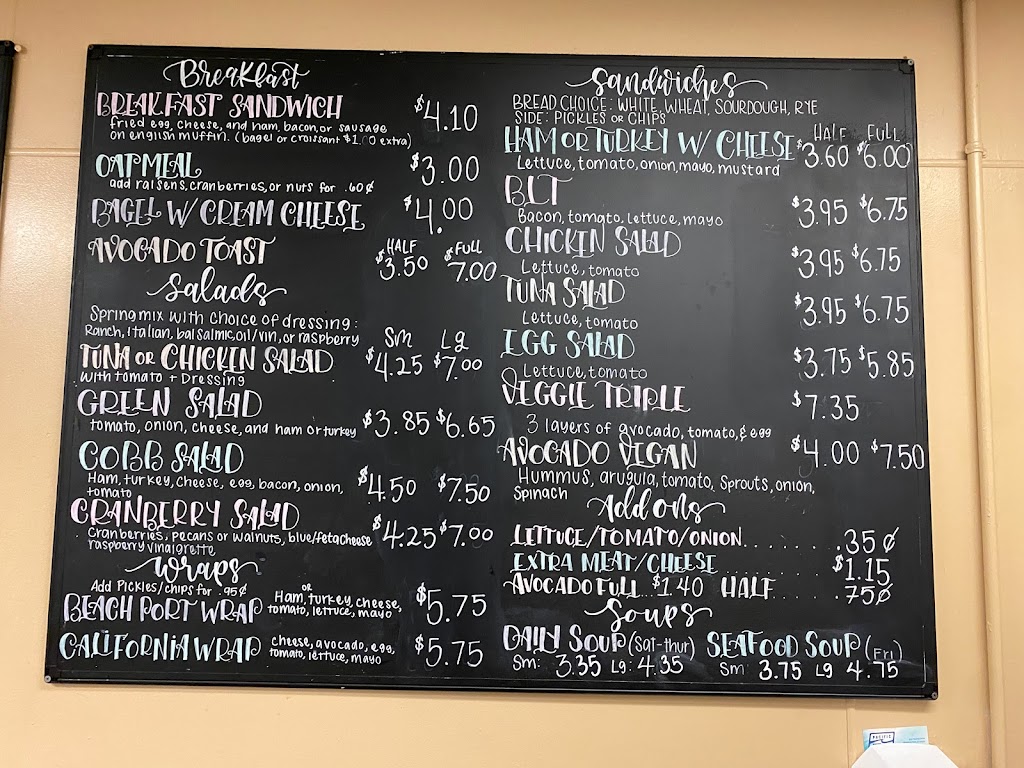 Breakfast
BREAKFAST SANDWICH $4.10
fried egg, cheese, and ham, bacon, or sausage
on english muffin. (bagel or croissant $1.00 extra)
OATMEAL $3.00
add raisens, cranberries, or nuts for .60¢
BAGEL W/ CREAM CHEESE $4.00
HALF FULL
AVOCADO TOAST $3.50 $7.00
Salads
Spring mix with choice of dressing:
Ranch, Italian, balsalmic, oil/vin, or raspberry
Sm Lg
TUNA OR CHICKEN SALAD $4.25 $7.00
with tomato + Dressing
GREEN SALAD
tomato, onion, cheese, and ham or turkey $3.85 $6.65
COBB SALAD
Ham, turkey, cheese, egg, bacon, onion, $4.50 $7.50
tomato
CRANBERRY SALAD
Cranberries, pecans or walnuts, blue/feta cheese $4.25 $7.00
raspberry vinaigrette
Wraps
Add Pickles/chips for .95¢
BEACH PORT WRAP Ham, or turkey, cheese, $5.75
tomato, lettuce, mayo
CALIFORNIA WRAP cheese, avocado, egg, $5.75
tomato, lettuce, mayo
Sandwiches
BREAD CHOICE: WHITE, WHEAT, SOURDOUGH, RYE
SIDE: PICKLES OR CHIPS
HALF FULL
HAM OR TURKEY W/ CHEESE $3.60 $6.00
Lettuce, tomato, onion, mayo, mustard
BLT $3.95 $6.75
Bacon, tomato, lettuce, mayo
CHICKEN SALAD $3.95 $6.75
Lettuce, tomato
TUNA SALAD $3.95 $6.75
Lettuce, tomato
EGG SALAD $3.75 $5.85
Lettuce, tomato
VEGGIE TRIPLE $7.35
3 layers of avocado, tomato, & egg
AVOCADO VEGAN $4.00 $7.50
Hummus, arugula, tomato, Sprouts, onion,
Spinach
Add ons
LETTUCE/TOMATO/ONION........ .35¢
EXTRA MEAT/CHEESE........ $1.15
AVOCADO FULL..$1.40 HALF...... .75¢
Soups
DAILY SOUP (Sat-thur) SEAFOOD SOUP (Fri)
Sm: 3.35 Lg: 4.35 Sm 3.75 Lg 4.75
PACIFIC